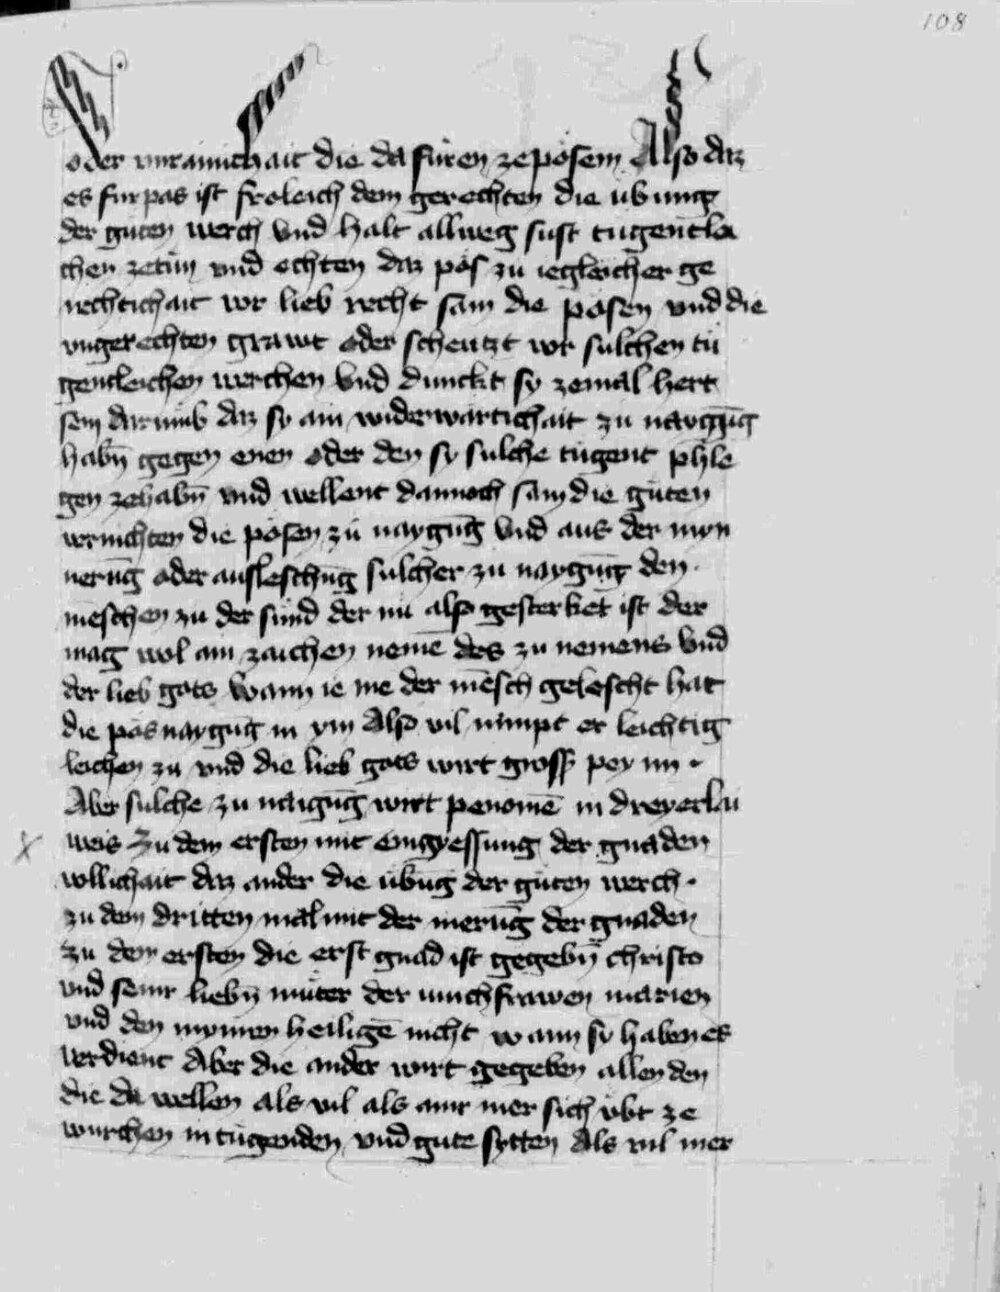 108
oder vnrainichait die da füren ze pösem Also daz
es furpas ist froleich dem gerechten die übung
der güten werch vnd halt allweg sust tugentla
chen zetün vnd echten daz pös zu iegleicher ge
rechtichait vor lieb recht sam die pösen vnd die
vngerechten grawt oder scheutzt vor sulchen tü
gentleichen werchen vnd dunckt sy zemal hert
sein darumb daz sy ain widerwärtichait zü naygūg
habn̄ gegen enen oder den sy sulche tugent phle
gen zehabn̄ vnd wellent dannoch sam die güten
vernichten die pösen zü naygūg vnd aus der myn
nerūg oder auslesschūg sulcher zu naygūg den
mēschen zu der sünd der nu also gesterket ist der
mag wol ain zaichen nemē des zu nemens vnd
der lieb gots wann ie me der mēsch gelescht hat
die pös naygūg in ym Also vil nimpt er leichtig
leichen zu vnd die lieb gots wirt gross pey im
Aber sulche zu naigūg wirt penomē in dreyerlai
weis Zu dem ersten mit eingyessung der gnaden
vollichait daz ander die übūg der güten werch
zu dem dritten mal mit der merūg der gnaden
zu dem ersten die erst gnad ist gegebn̄ christo
vnd seinr liebn̄ müter der iunchfrawen marien
vnd den mynren heiligē nicht wann sy haben es
verdient Aber die ander wirt gegeben allen den
die da wellen als vil als ainr mer sich übt ze
würchen in tugenden vnd gute sytten Als vil mer